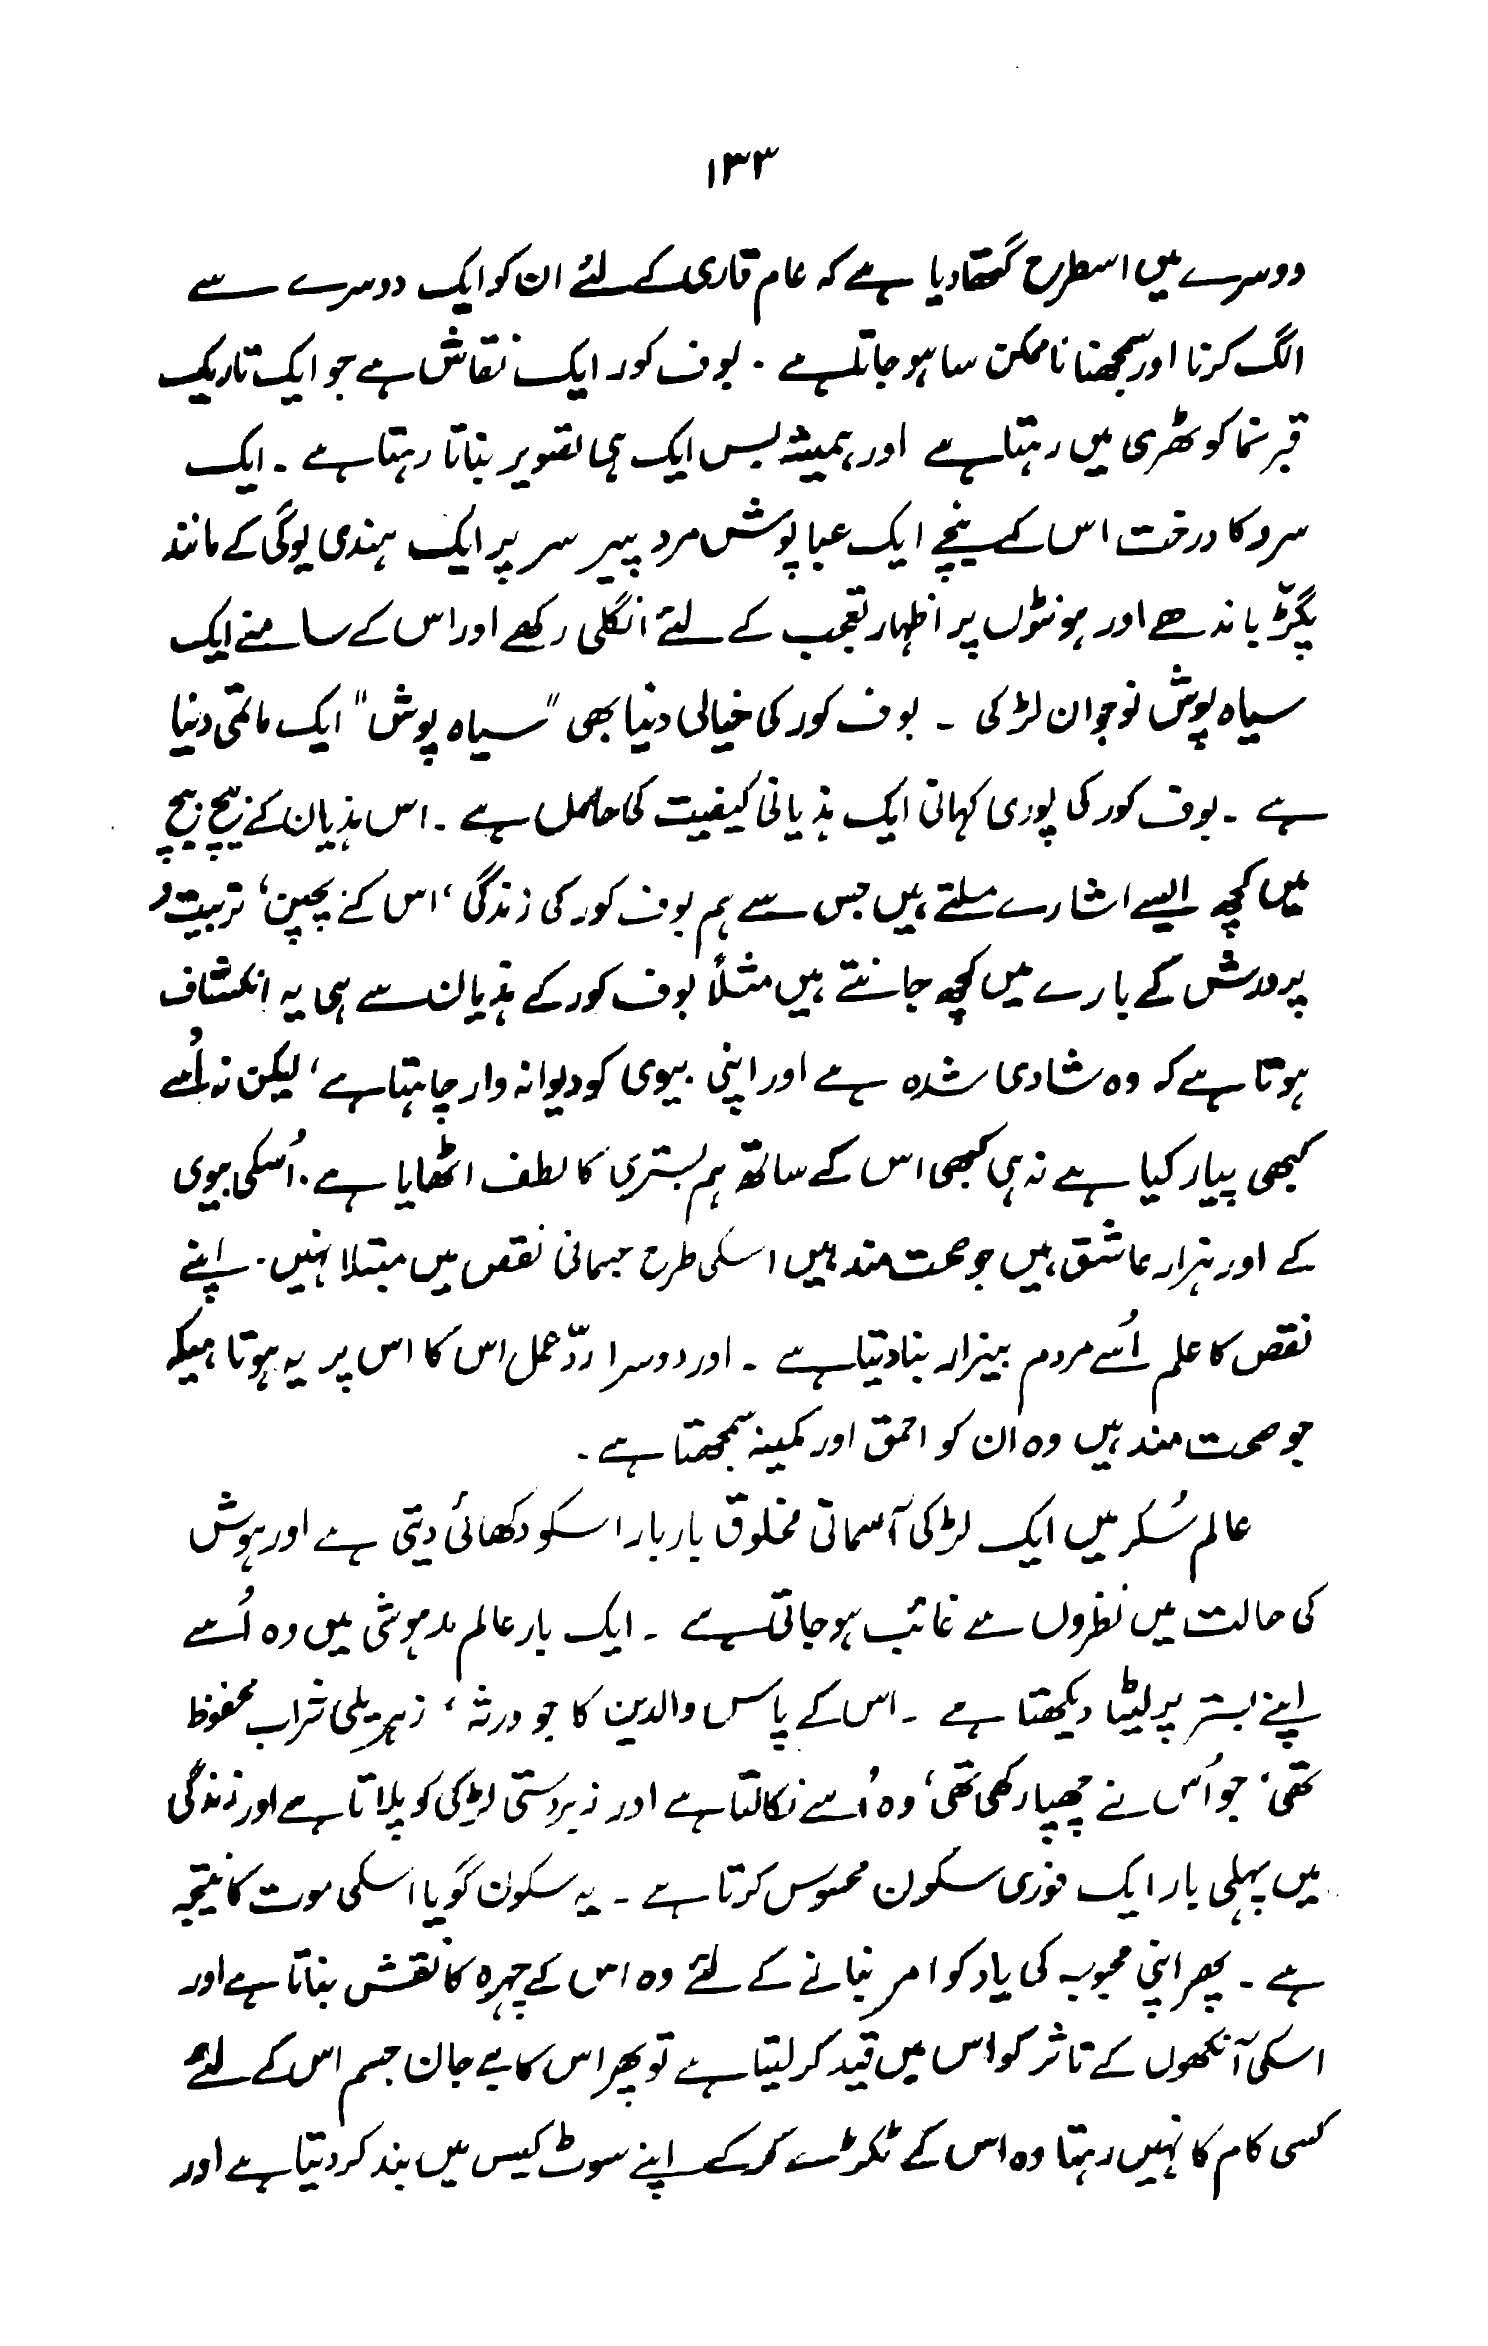 ۱۳۳
دوسرے میں اسطرح گتھا دیا ہے کہ عام قاری کے لئے ان کو ایک دوسرے سے
الگ کرنا اور سمجھنا ناممکن سا ہو جاتا ہے ۔ بوف کور ایک نقاش ہے جو ایک تاریک
قبر نما کوٹھری میں رہتا ہے اور ہمیشہ بس ایک ہی تصویر بناتا رہتا ہے ۔ ایک
سرو کا درخت اس کے نیچے ایک عبا پوش مرد پیر سر پر ایک ہندی یوگی کے مانند
پگڑّ باندھے اور ہونٹوں پر اظہار تعجب کے لئے انگلی رکھے اور اس کے سامنے ایک
سیاہ پوش نوجوان لڑکی ۔ بوف کور کی خیالی دنیا بھی "سیاہ پوش" ایک ماتمی دنیا
ہے ۔ بوف کور کی پوری کہانی ایک ہذیانی کیفیت کی حامل ہے ۔ اس ہذیان کے بیچ بیچ
میں کچھ ایسے اشارے ملتے ہیں جس سے ہم بوف کور کی زندگی ، اس کے بچپن ، تربیت و
پرورش کے بارے میں کچھ جانتے ہیں مثلاً بوف کور کے ہذیان سے ہی یہ انکشاف
ہوتا ہے کہ وہ شادی شدہ ہے اور اپنی بیوی کو دیوانہ وار چاہتا ہے ، لیکن نہ اُسے
کبھی پیار کیا ہے نہ ہی کبھی اس کے ساتھ ہم بستری کا لطف اٹھایا ہے ۔ اُسکی بیوی
کے اور ہزار عاشق ہیں جو صحت مند ہیں اسکی طرح جسمانی نقص میں مبتلا نہیں ۔ اپنے
نقص کا علم اُسے مردم بیزار بنا دیتا ہے ۔ اور دوسرا ردّ عمل اس کا اس پر یہ ہوتا ہیکہ
جو صحت مند ہیں وہ ان کو احمق اور کمینہ سمجھتا ہے ۔
عالم سُکر میں ایک لڑکی آسمانی مخلوق بار بار اسکو دکھائی دیتی ہے اور ہوش
کی حالت میں نظروں سے غائب ہو جاتی ہے ۔ ایک بار عالم مدہوشی میں وہ اُسے
اپنے بستر پر لیٹا دیکھتا ہے ۔ اس کے پاس والدین کا جو ورثہ ، زہریلی شراب محفوظ
تھی ، جو اُس نے چھپا رکھی تھی ، وہ اُسے نکالتا ہے اور زبردستی لڑکی کو پلاتا ہے اور زندگی
میں پہلی بار ایک فوری سکون محسوس کرتا ہے ۔ یہ سکون گویا اسکی موت کا نتیجہ
ہے ۔ پھر اپنی محبوبہ کی یاد کو امر بنانے کے لئے وہ اس کے چہرہ کا نقش بناتا ہے اور
اسکی آنکھوں کے تاثر کو اس میں قید کر لیتا ہے تو پھر اس کا بے جان جسم اس کے لئے
کسی کام کا نہیں رہتا وہ اس کے ٹکڑے کر کے اپنے سوٹ کیس میں بند کر دیتا ہے اور